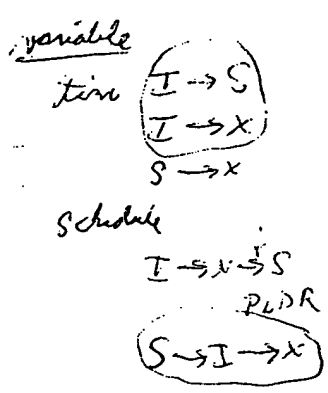 variable
time I → S
I → X
S → X
Schedule
I → X → S
PLDR
S → I → X